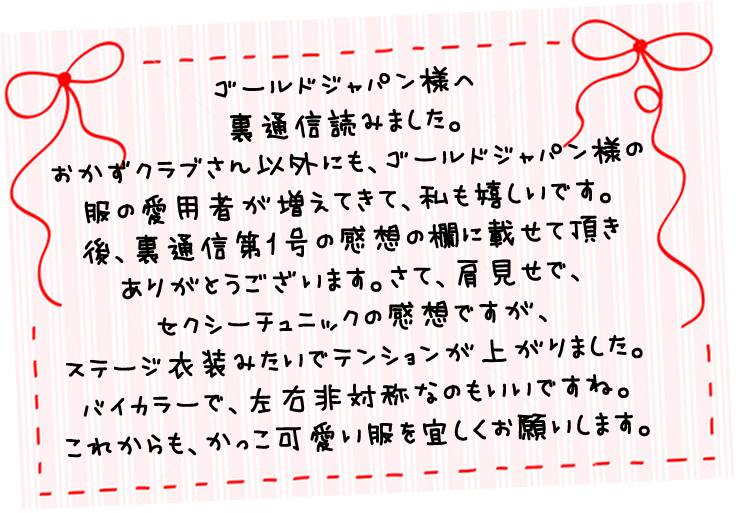 ゴールドジャパン様へ
裏通信読みました。
おかずクラブさん以外にも、ゴールドジャパン様の
服の愛用者が増えてきて、私も嬉しいです。
後、裏通信第1号の感想の欄に載せて頂き
ありがとうございます。さて、肩見せで、
セクシーチュニックの感想ですが、
ステージ衣装みたいでテンションが上がりました。
バイカラーで、左右非対称なのもいいですね。
これからも、かっこ可愛い服を宜しくお願いします。